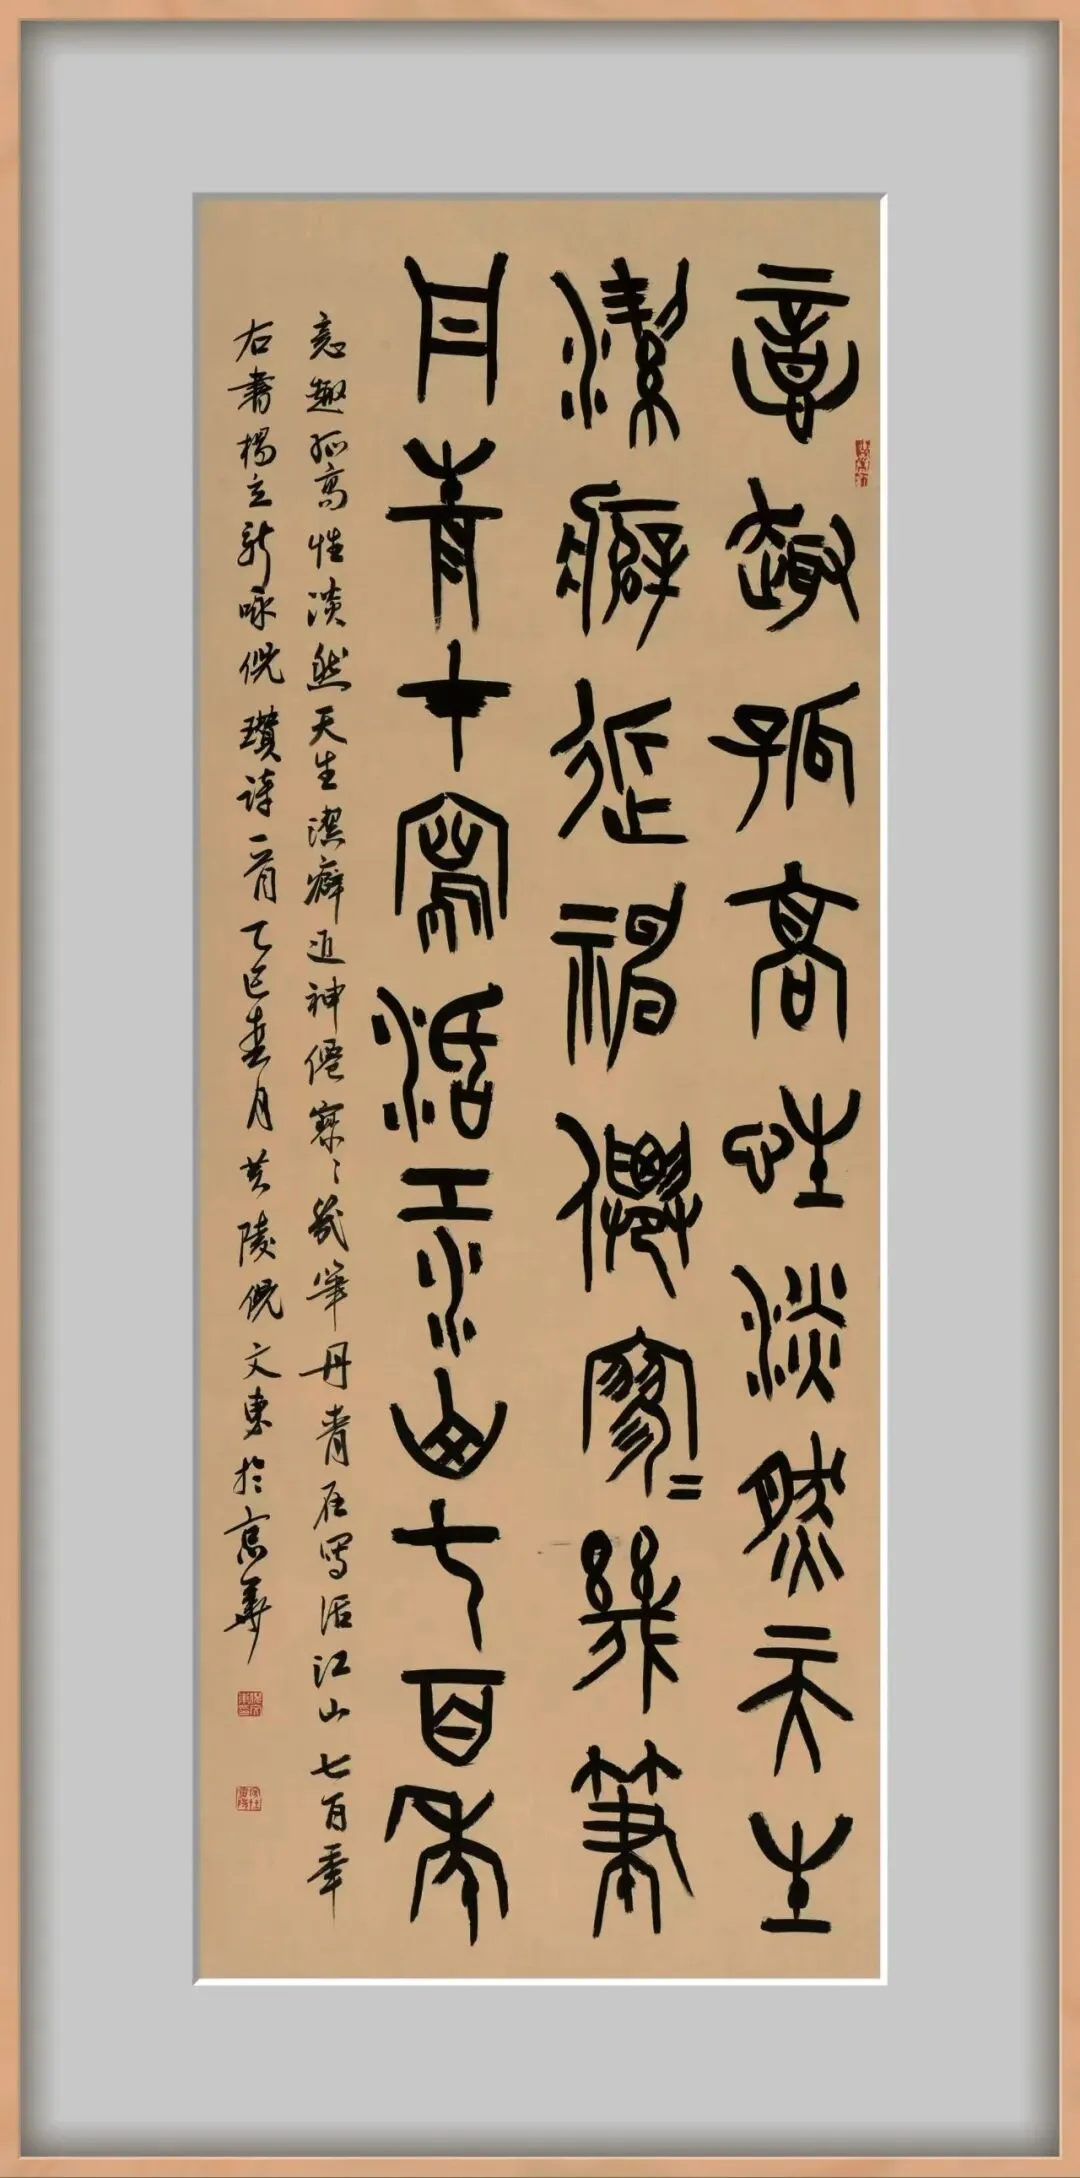 意趣孤高性淡然天生
潔癖近神僊寥=幾筆
丹青在寫活江山七百年
意趣孤高性淡然天生潔癖近神僊寥〻幾筆丹青在寫活江山七百年
右書楊立新咏倪瓚詩一首乙巳春月黄陵倪文東於京華